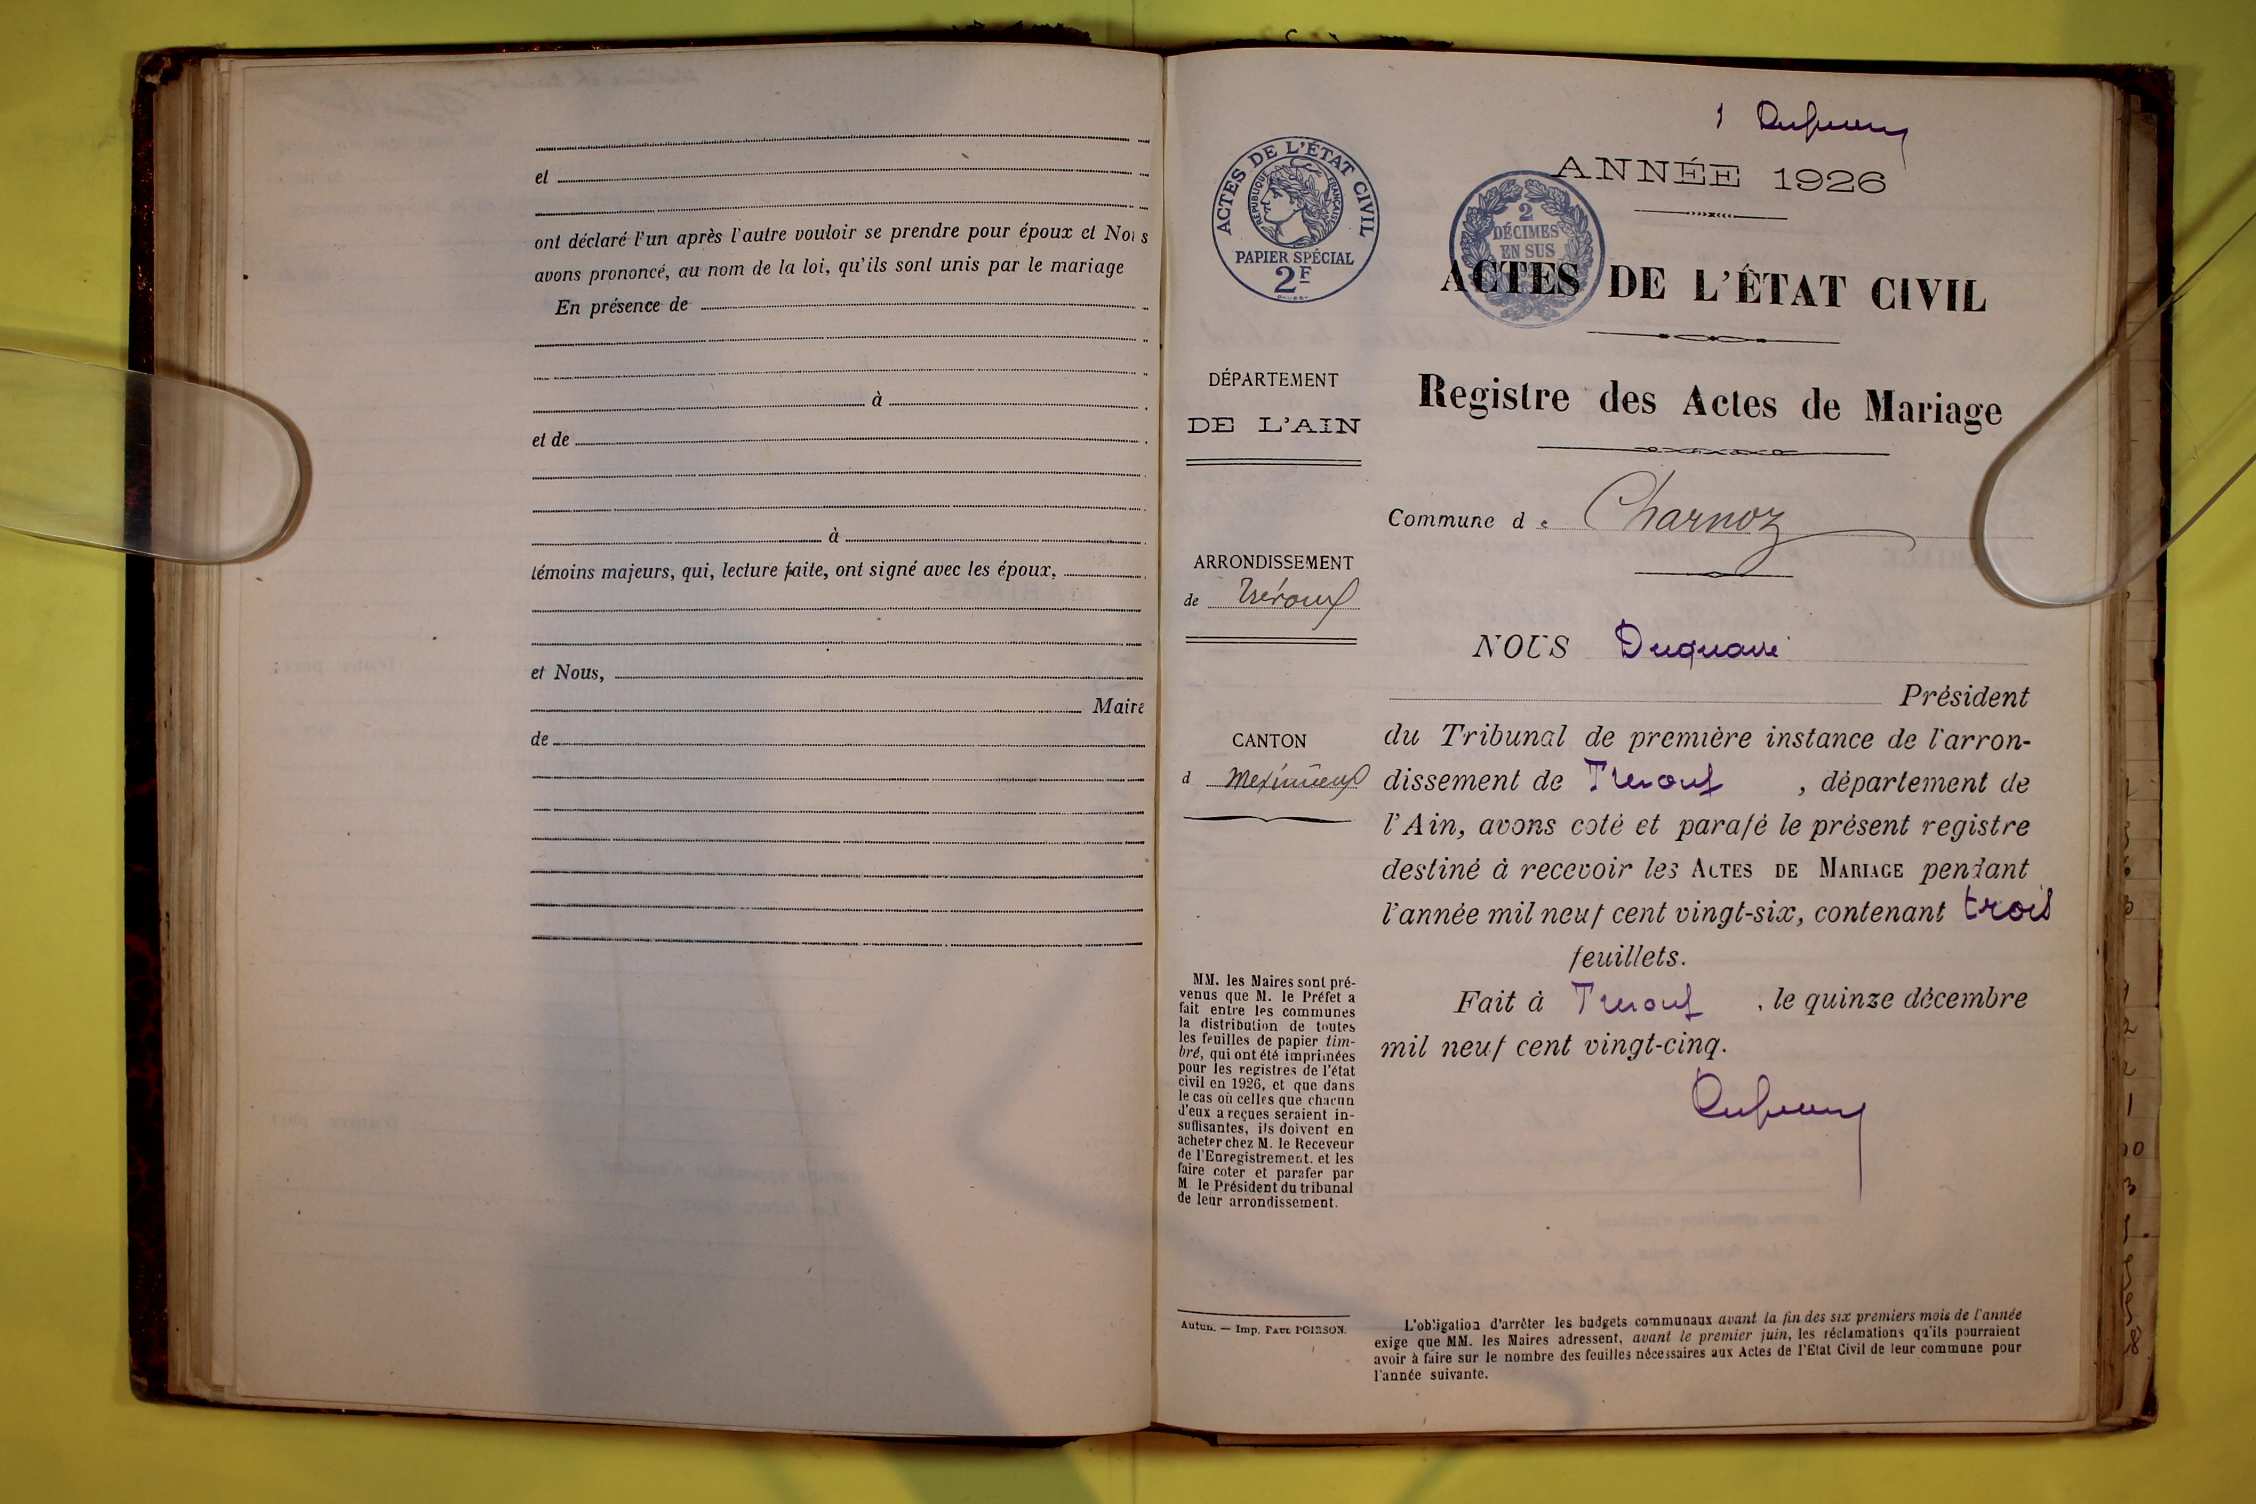 et
ont déclaré l'un après l'autre vouloir se prendre pour époux et Nous
avons prononcé, au nom de la loi, qu'ils sont unis par le mariage
En présence de
à
et de
à
témoins majeurs, qui, lecture faite, ont signé avec les époux,
et Nous,
Maire
de
1
ANNÉE 1926
ACTES DE L'ÉTAT CIVIL
RÉPUBLIQUE FRANÇAISE
PAPIER SPÉCIAL
2F
2
DÉCIMES
EN SUS
ACTES DE L'ÉTAT CIVIL
Registre des Actes de Mariage
Commune de Charnoz
DÉPARTEMENT
DE L'AIN
ARRONDISSEMENT
de Trévoux
CANTON
d Meximieux
MM. les Maires sont pré-
venus que M. le Préfet a
fait entre les communes
la distribution de toutes
les feuilles de papier tim-
bré, qui ont été imprimées
pour les registres de l'état
civil en 1926, et que dans
le cas où celles que chacun
d'eux a reçues seraient in-
suffisantes, ils doivent en
acheter chez M. le Receveur
de l'Enregistrement. et les
faire coter et parafer par
M le Président du tribunal
de leur arrondissement.
Autun. — Imp. PAUL POIRSON.
NOUS
Président
du Tribunal de première instance de l'arron-
dissement de Trevoux, département de
l'Ain, avons coté et parafé le présent registre
destiné à recevoir les ACTES DE MARIAGE pendant
l'année mil neuf cent vingt-six, contenant trois
feuillets.
Fait à Trevoux, le quinze décembre
mil neuf cent vingt-cinq.
L'obligation d'arrêter les budgets communaux avant la fin des six premiers mois de l'année
exige que MM. les Maires adressent, avant le premier juin, les réclamations qu'ils pourraient
avoir à faire sur le nombre des feuilles nécessaires aux Actes de l'Etat Civil de leur commune pour
l'année suivante.